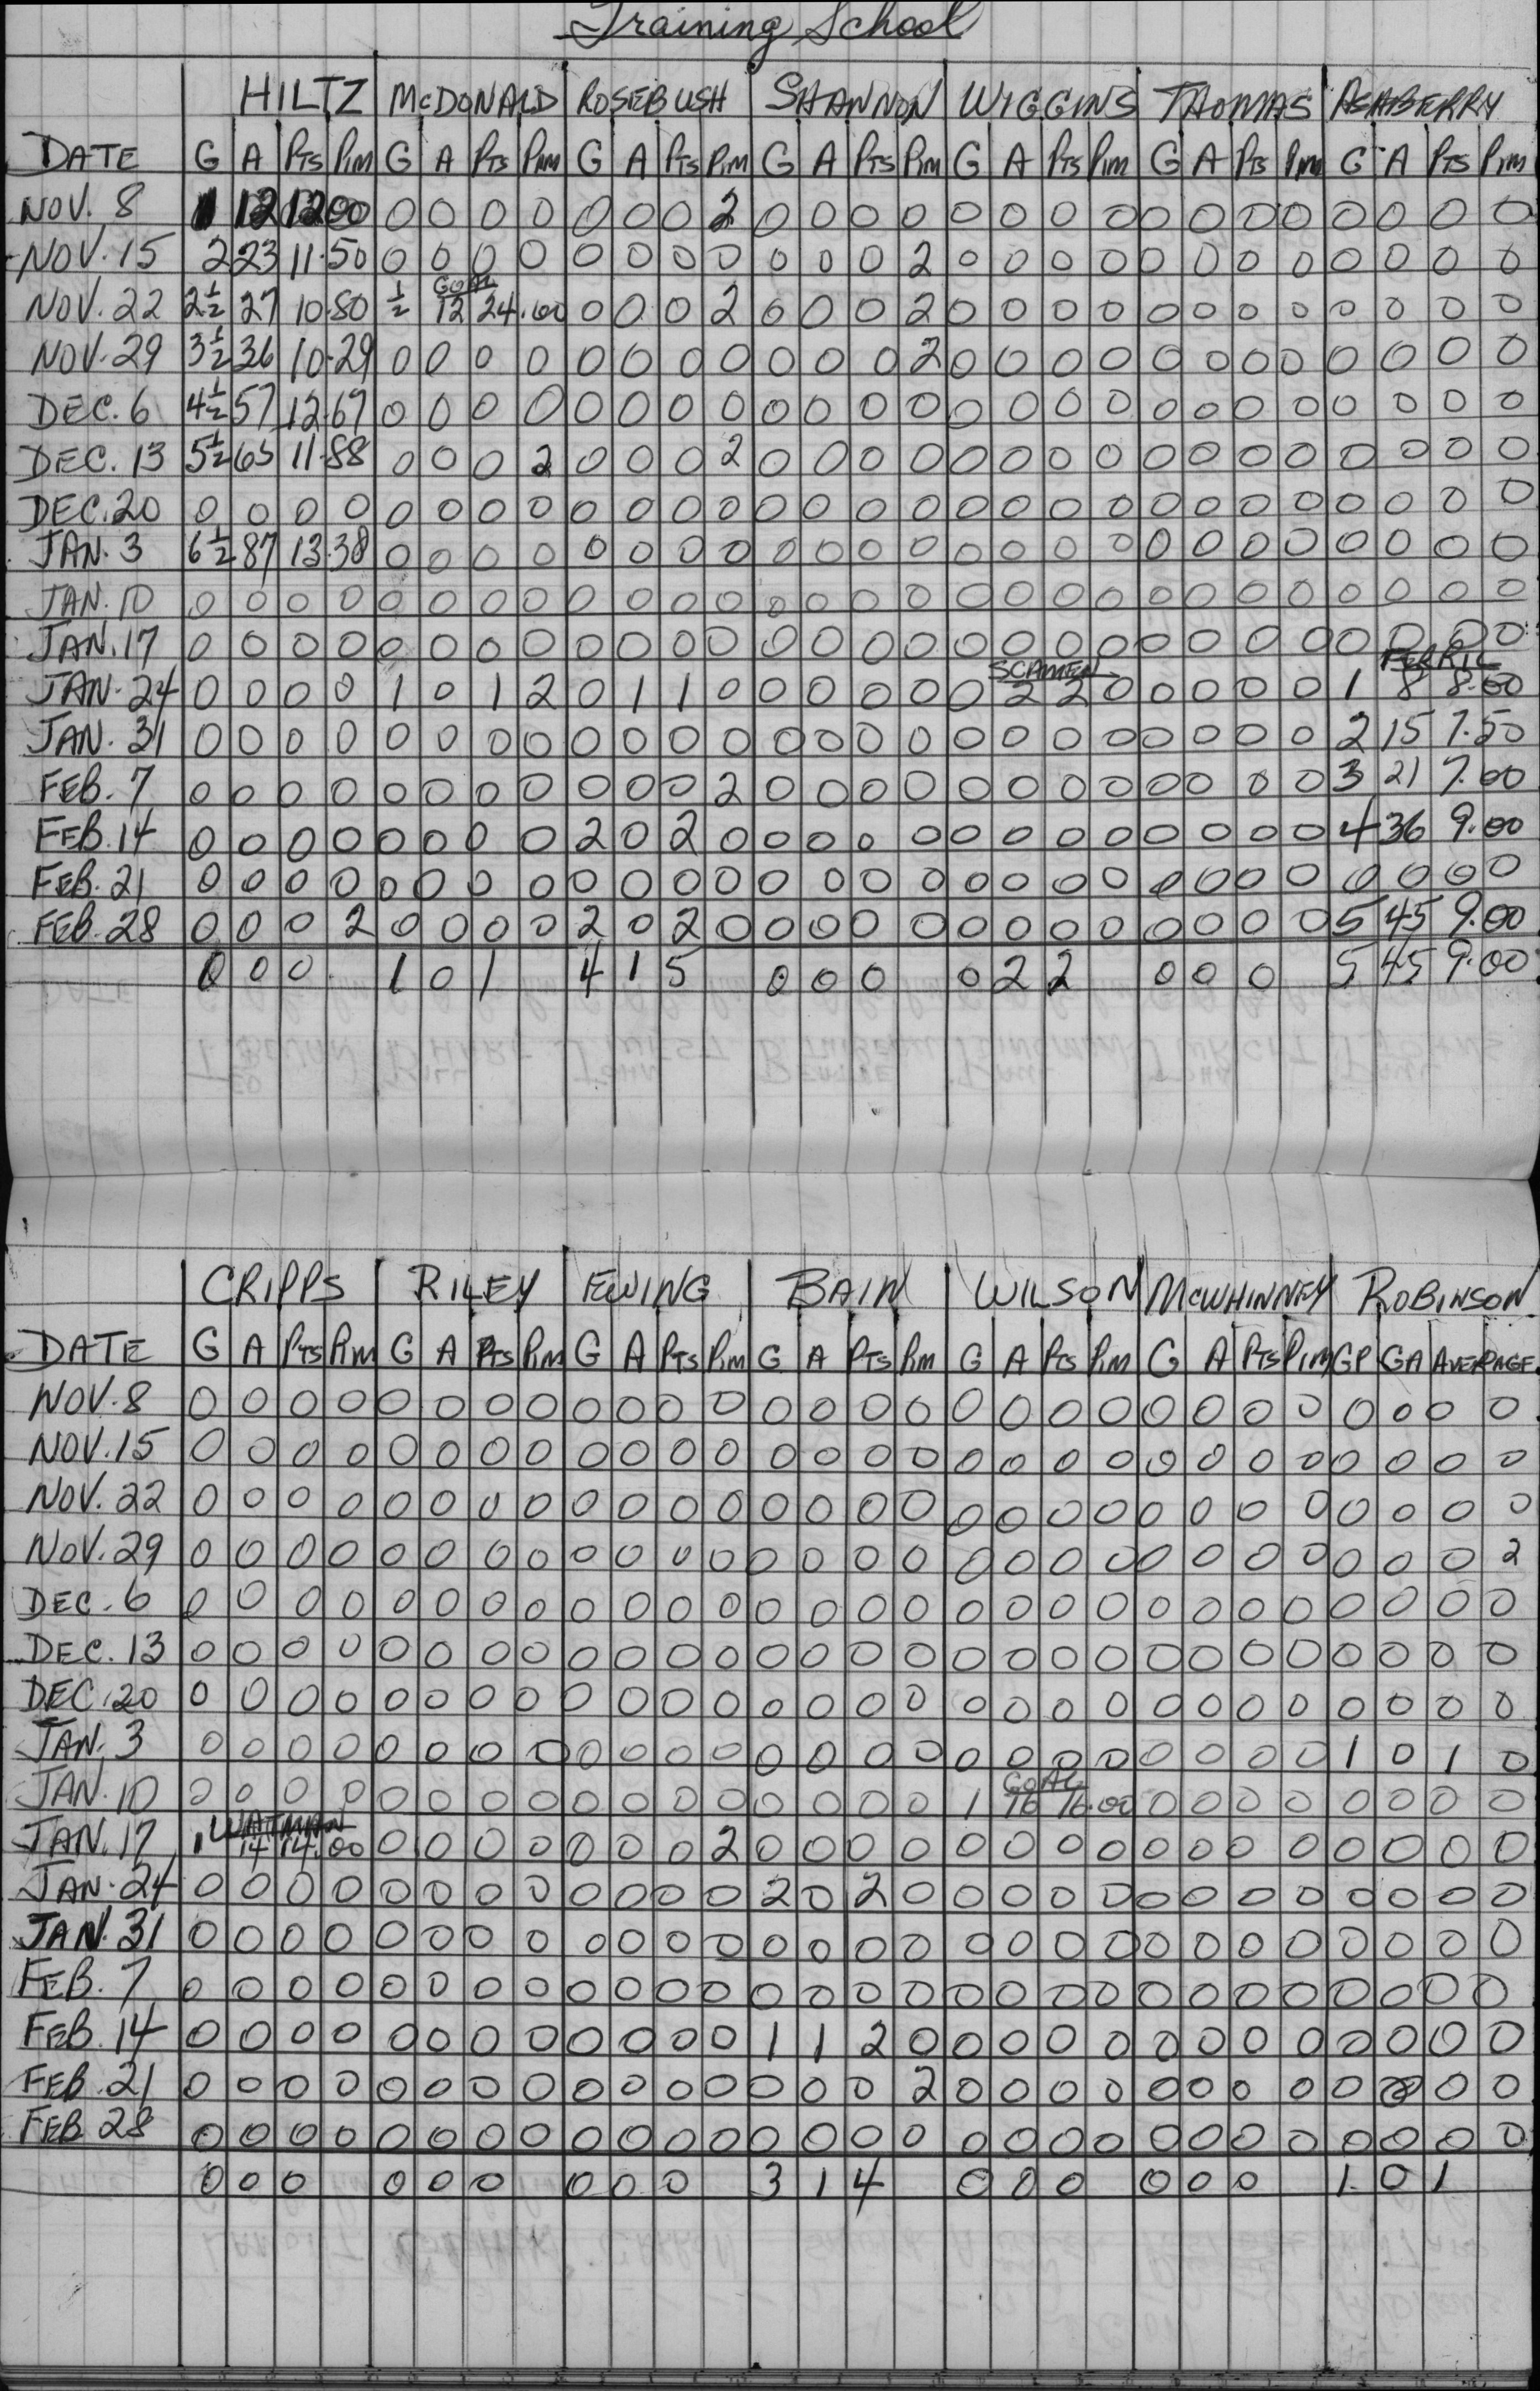 Training School
HILTZ McDONALD ROSEBUSH SHANNON WIGGINS THOMAS ASABERRY
DATE G A PTS PIM G A PTS PIM G A PTS PIM G A PTS PIM G A PTS PIM G A PTS PIM G A PTS PIM
NOV. 8 1 12 12.00 0 0 0 0 0 0 0 2 0 0 0 0 0 0 0 0 0 0 0 0 0 0 0 0
NOV. 15 2 23 11.50 0 0 0 0 0 0 0 0 0 0 0 2 0 0 0 0 0 0 0 0 0 0 0 0
GOAL
NOV. 22 2½ 27 10.80 ½ 12 24.00 0 0 0 2 0 0 0 2 0 0 0 0 0 0 0 0 0 0 0 0
NOV. 29 3½ 36 10.29 0 0 0 0 0 0 0 0 0 0 0 2 0 0 0 0 0 0 0 0 0 0 0 0
DEC. 6 4½ 57 12.67 0 0 0 0 0 0 0 0 0 0 0 0 0 0 0 0 0 0 0 0 0 0 0 0
DEC. 13 5½ 65 11.88 0 0 0 2 0 0 0 2 0 0 0 0 0 0 0 0 0 0 0 0 0 0 0 0
DEC. 20 0 0 0 0 0 0 0 0 0 0 0 0 0 0 0 0 0 0 0 0 0 0 0 0 0 0 0 0
JAN. 3 6½ 87 13.38 0 0 0 0 0 0 0 0 0 0 0 0 0 0 0 0 0 0 0 0 0 0 0 0
JAN. 10 0 0 0 0 0 0 0 0 0 0 0 0 0 0 0 0 0 0 0 0 0 0 0 0 0 0 0 0
JAN. 17 0 0 0 0 0 0 0 0 0 0 0 0 0 0 0 0 0 0 0 0 0 0 0 0 0 0 0 0
SCAMEN
JAN. 24 0 0 0 0 1 0 1 2 0 1 1 0 0 0 0 0 0 2 2 0 0 0 0 0 1 8 8.00
JAN. 31 0 0 0 0 0 0 0 0 0 0 0 0 0 0 0 0 0 0 0 0 0 0 0 0 2 15 7.50
FEB. 7 0 0 0 0 0 0 0 0 0 0 0 2 0 0 0 0 0 0 0 0 0 0 0 0 3 21 7.00
FEB. 14 0 0 0 0 0 0 0 0 2 0 2 0 0 0 0 0 0 0 0 0 0 0 0 0 4 36 9.00
FEB. 21 0 0 0 0 0 0 0 0 0 0 0 0 0 0 0 0 0 0 0 0 0 0 0 0 0 0 0 0
FEB. 28 0 0 0 2 0 0 0 0 2 0 2 0 0 0 0 0 0 0 0 0 0 0 0 0 5 45 9.00
0 0 0 1 0 1 4 1 5 0 0 0 0 2 2 0 0 0 5 45 9.00
CRIPPS RILEY EWING BAIN WILSON McWHINNEY ROBINSON
DATE G A PTS PIM G A PTS PIM G A PTS PIM G A PTS PIM G A PTS PIM G A PTS PIM GP GA AVERAGE
NOV. 8 0 0 0 0 0 0 0 0 0 0 0 0 0 0 0 0 0 0 0 0 0 0 0 0 0 0 0 0
NOV. 15 0 0 0 0 0 0 0 0 0 0 0 0 0 0 0 0 0 0 0 0 0 0 0 0 0 0 0 0
NOV. 22 0 0 0 0 0 0 0 0 0 0 0 0 0 0 0 0 0 0 0 0 0 0 0 0 0 0 0 0
NOV. 29 0 0 0 0 0 0 0 0 0 0 0 0 0 0 0 0 0 0 0 0 0 0 0 0 0 0 0 2
DEC. 6 0 0 0 0 0 0 0 0 0 0 0 0 0 0 0 0 0 0 0 0 0 0 0 0 0 0 0 0
DEC. 13 0 0 0 0 0 0 0 0 0 0 0 0 0 0 0 0 0 0 0 0 0 0 0 0 0 0 0 0
DEC. 20 0 0 0 0 0 0 0 0 0 0 0 0 0 0 0 0 0 0 0 0 0 0 0 0 0 0 0 0
JAN. 3 0 0 0 0 0 0 0 0 0 0 0 0 0 0 0 0 0 0 0 0 0 0 0 0 1 0 1 0
GOAL
JAN. 10 0 0 0 0 0 0 0 0 0 0 0 0 0 0 0 0 1 16 16.00 0 0 0 0 0 0 0 0
WATMAN
JAN. 17 1 14 14.00 0 0 0 0 0 0 0 2 0 0 0 0 0 0 0 0 0 0 0 0 0 0 0 0
JAN. 24 0 0 0 0 0 0 0 0 0 0 0 0 2 0 2 0 0 0 0 0 0 0 0 0 0 0 0 0
JAN. 31 0 0 0 0 0 0 0 0 0 0 0 0 0 0 0 0 0 0 0 0 0 0 0 0 0 0 0 0
FEB. 7 0 0 0 0 0 0 0 0 0 0 0 0 0 0 0 0 0 0 0 0 0 0 0 0 0 0 0 0
FEB. 14 0 0 0 0 0 0 0 0 0 0 0 0 1 1 2 0 0 0 0 0 0 0 0 0 0 0 0 0
FEB. 21 0 0 0 0 0 0 0 0 0 0 0 0 0 0 0 2 0 0 0 0 0 0 0 0 0 0 0 0
FEB 28 0 0 0 0 0 0 0 0 0 0 0 0 0 0 0 0 0 0 0 0 0 0 0 0 0 0 0 0
0 0 0 0 0 0 0 0 0 3 1 4 0 0 0 0 0 0 1 0 1